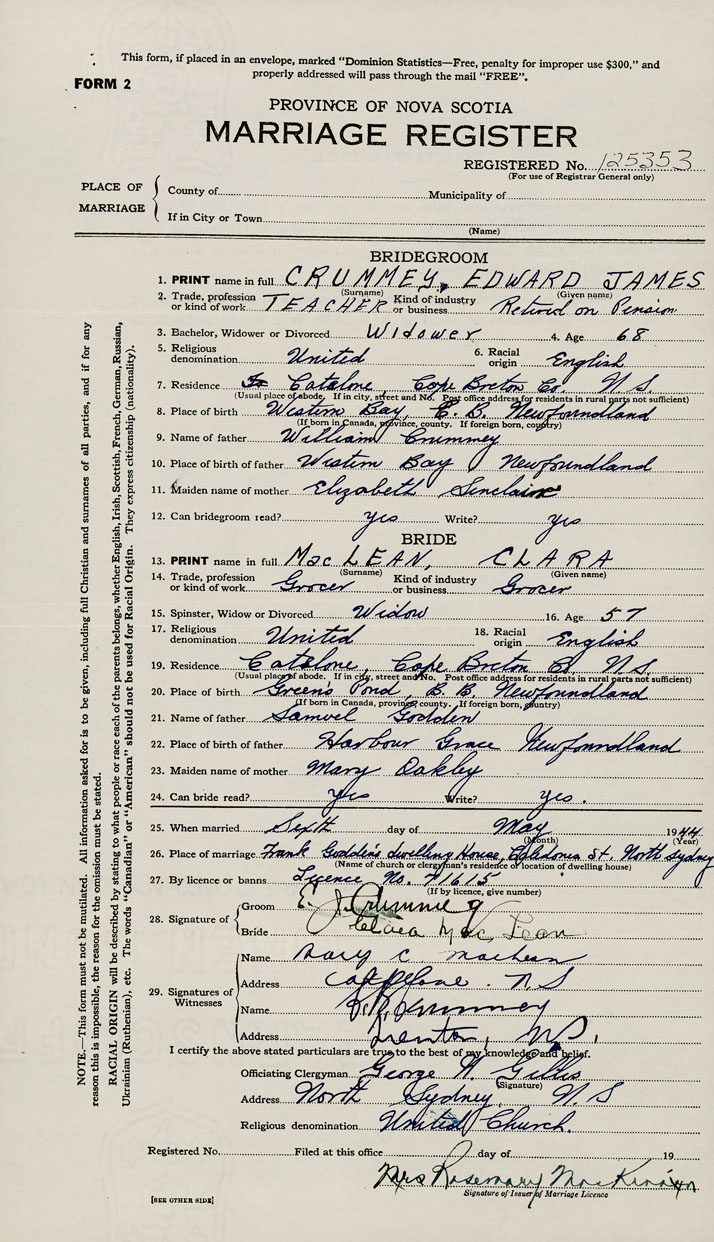 This form, if placed in an envelope, marked "Dominion Statistics—Free, penalty for improper use $300," and
properly addressed will pass through the mail "FREE".
FORM 2
PROVINCE OF NOVA SCOTIA
MARRIAGE REGISTER
REGISTERED No. 125353
(For use of Registrar General only)
PLACE OF MARRIAGE
County of Municipality of
If in City or Town
(Name)
BRIDEGROOM
1. PRINT name in full CRUMMEY, EDWARD JAMES
(Surname) (Given name)
2. Trade, profession or kind of work TEACHER Kind of industry or business Retired on Pension
3. Bachelor, Widower or Divorced Widower 4. Age 68
5. Religious denomination United 6. Racial origin English
7. Residence Catalone, Cape Breton Co. N S
(Usual place of abode. If in city, street and No. Post office address for residents in rural parts not sufficient)
8. Place of birth Western Bay, C. B. Newfoundland
(If born in Canada, province, county. If foreign born, country)
9. Name of father William Crummey
10. Place of birth of father Western Bay Newfoundland
11. Maiden name of mother Elizabeth Sinclair
12. Can bridegroom read? yes Write? yes
BRIDE
13. PRINT name in full MacLEAN, CLARA
(Surname) (Given name)
14. Trade, profession or kind of work Grocer Kind of industry or business Grocer
15. Spinster, Widow or Divorced Widow 16. Age 57
17. Religious denomination United 18. Racial origin English
19. Residence Catalone, Cape Breton N.S.
(Usual place of abode. If in city, street and No. Post office address for residents in rural parts not sufficient)
20. Place of birth Green's Pond, B. B. Newfoundland
(If born in Canada, province, county. If foreign born, country)
21. Name of father Samuel Godden
22. Place of birth of father Harbour Grace Newfoundland
23. Maiden name of mother Mary Oakley
24. Can bride read? yes Write? yes.
25. When married Sixth day of May 1944
(Month) (Year)
26. Place of marriage Frank Godden's dwelling House, St. North Sydney
(Name of church or clergyman's residence or location of dwelling house)
27. By licence or banns Licence No. 71615
(If by licence, give number)
28. Signature of
Groom E. J. Crummey
Bride Clara MacLean
29. Signatures of Witnesses
Name Mary C. MacLean
Address Catalone. N S
Name Crummey
Address Trenton, N.S.
I certify the above stated particulars are true to the best of my knowledge and belief.
Officiating Clergyman George N. Gillis
(Signature)
Address North Sydney, N.S
Religious denomination United Church.
Registered No. Filed at this office day of 19
Mrs Rosemary MacKinnon
Signature of Issuer of Marriage Licence
[SEE OTHER SIDE]
NOTE.—This form must not be mutilated. All information asked for is to be given, including full Christian and surnames of all parties, and if for any
reason this is impossible, the reason for the omission must be stated.
RACIAL ORIGIN will be described by stating to what people or race each of the parents belongs, whether English, Irish, Scottish, French, German, Russian,
Ukrainian (Ruthenian), etc. The words "Canadian" or "American" should not be used for Racial Origin. They express citizenship (nationality).